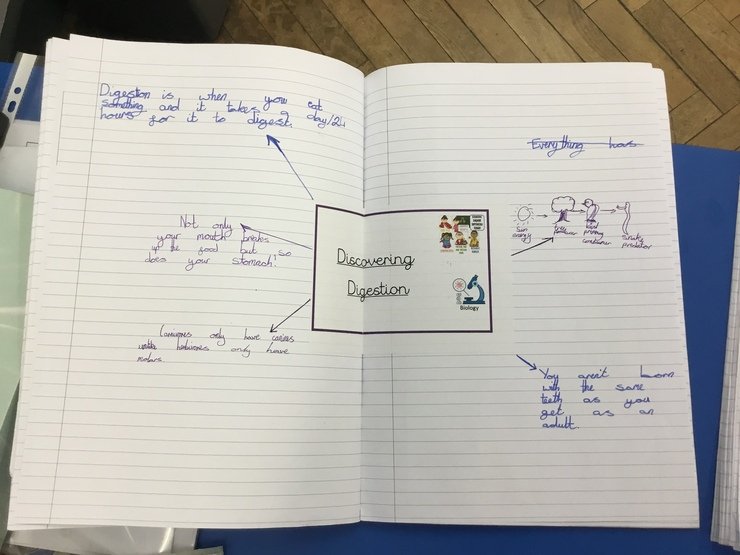 Digestion is when you eat
something and it takes a day/24
hours for it to digest.
Not only
your mouth breaks
up the food but so
does your stomach.
Carnivores only have canines
unlike herbivores only have
molars
Discovering
Digestion
Biology
Everything has
Sun
energy
tree
producer
primary
consumer
snake
predator
You aren't born
with the same
teeth as you
get as an
adult.